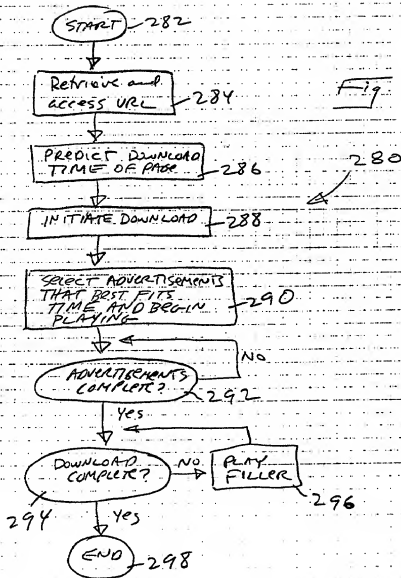 START 282
Retrieve and
access URL 284
Fig
PREDICT DOWNLOAD
TIME OF PAGE 286
280
INITIATE DOWNLOAD 288
SELECT ADVERTISEMENTS
THAT BEST FITS
TIME AND BEGIN
PLAYING
290
NO
ADVERTISEMENTS
COMPLETE?
292
Yes
DOWNLOAD
COMPLETE?
NO
PLAY
FILLER
294
296
Yes
END 298